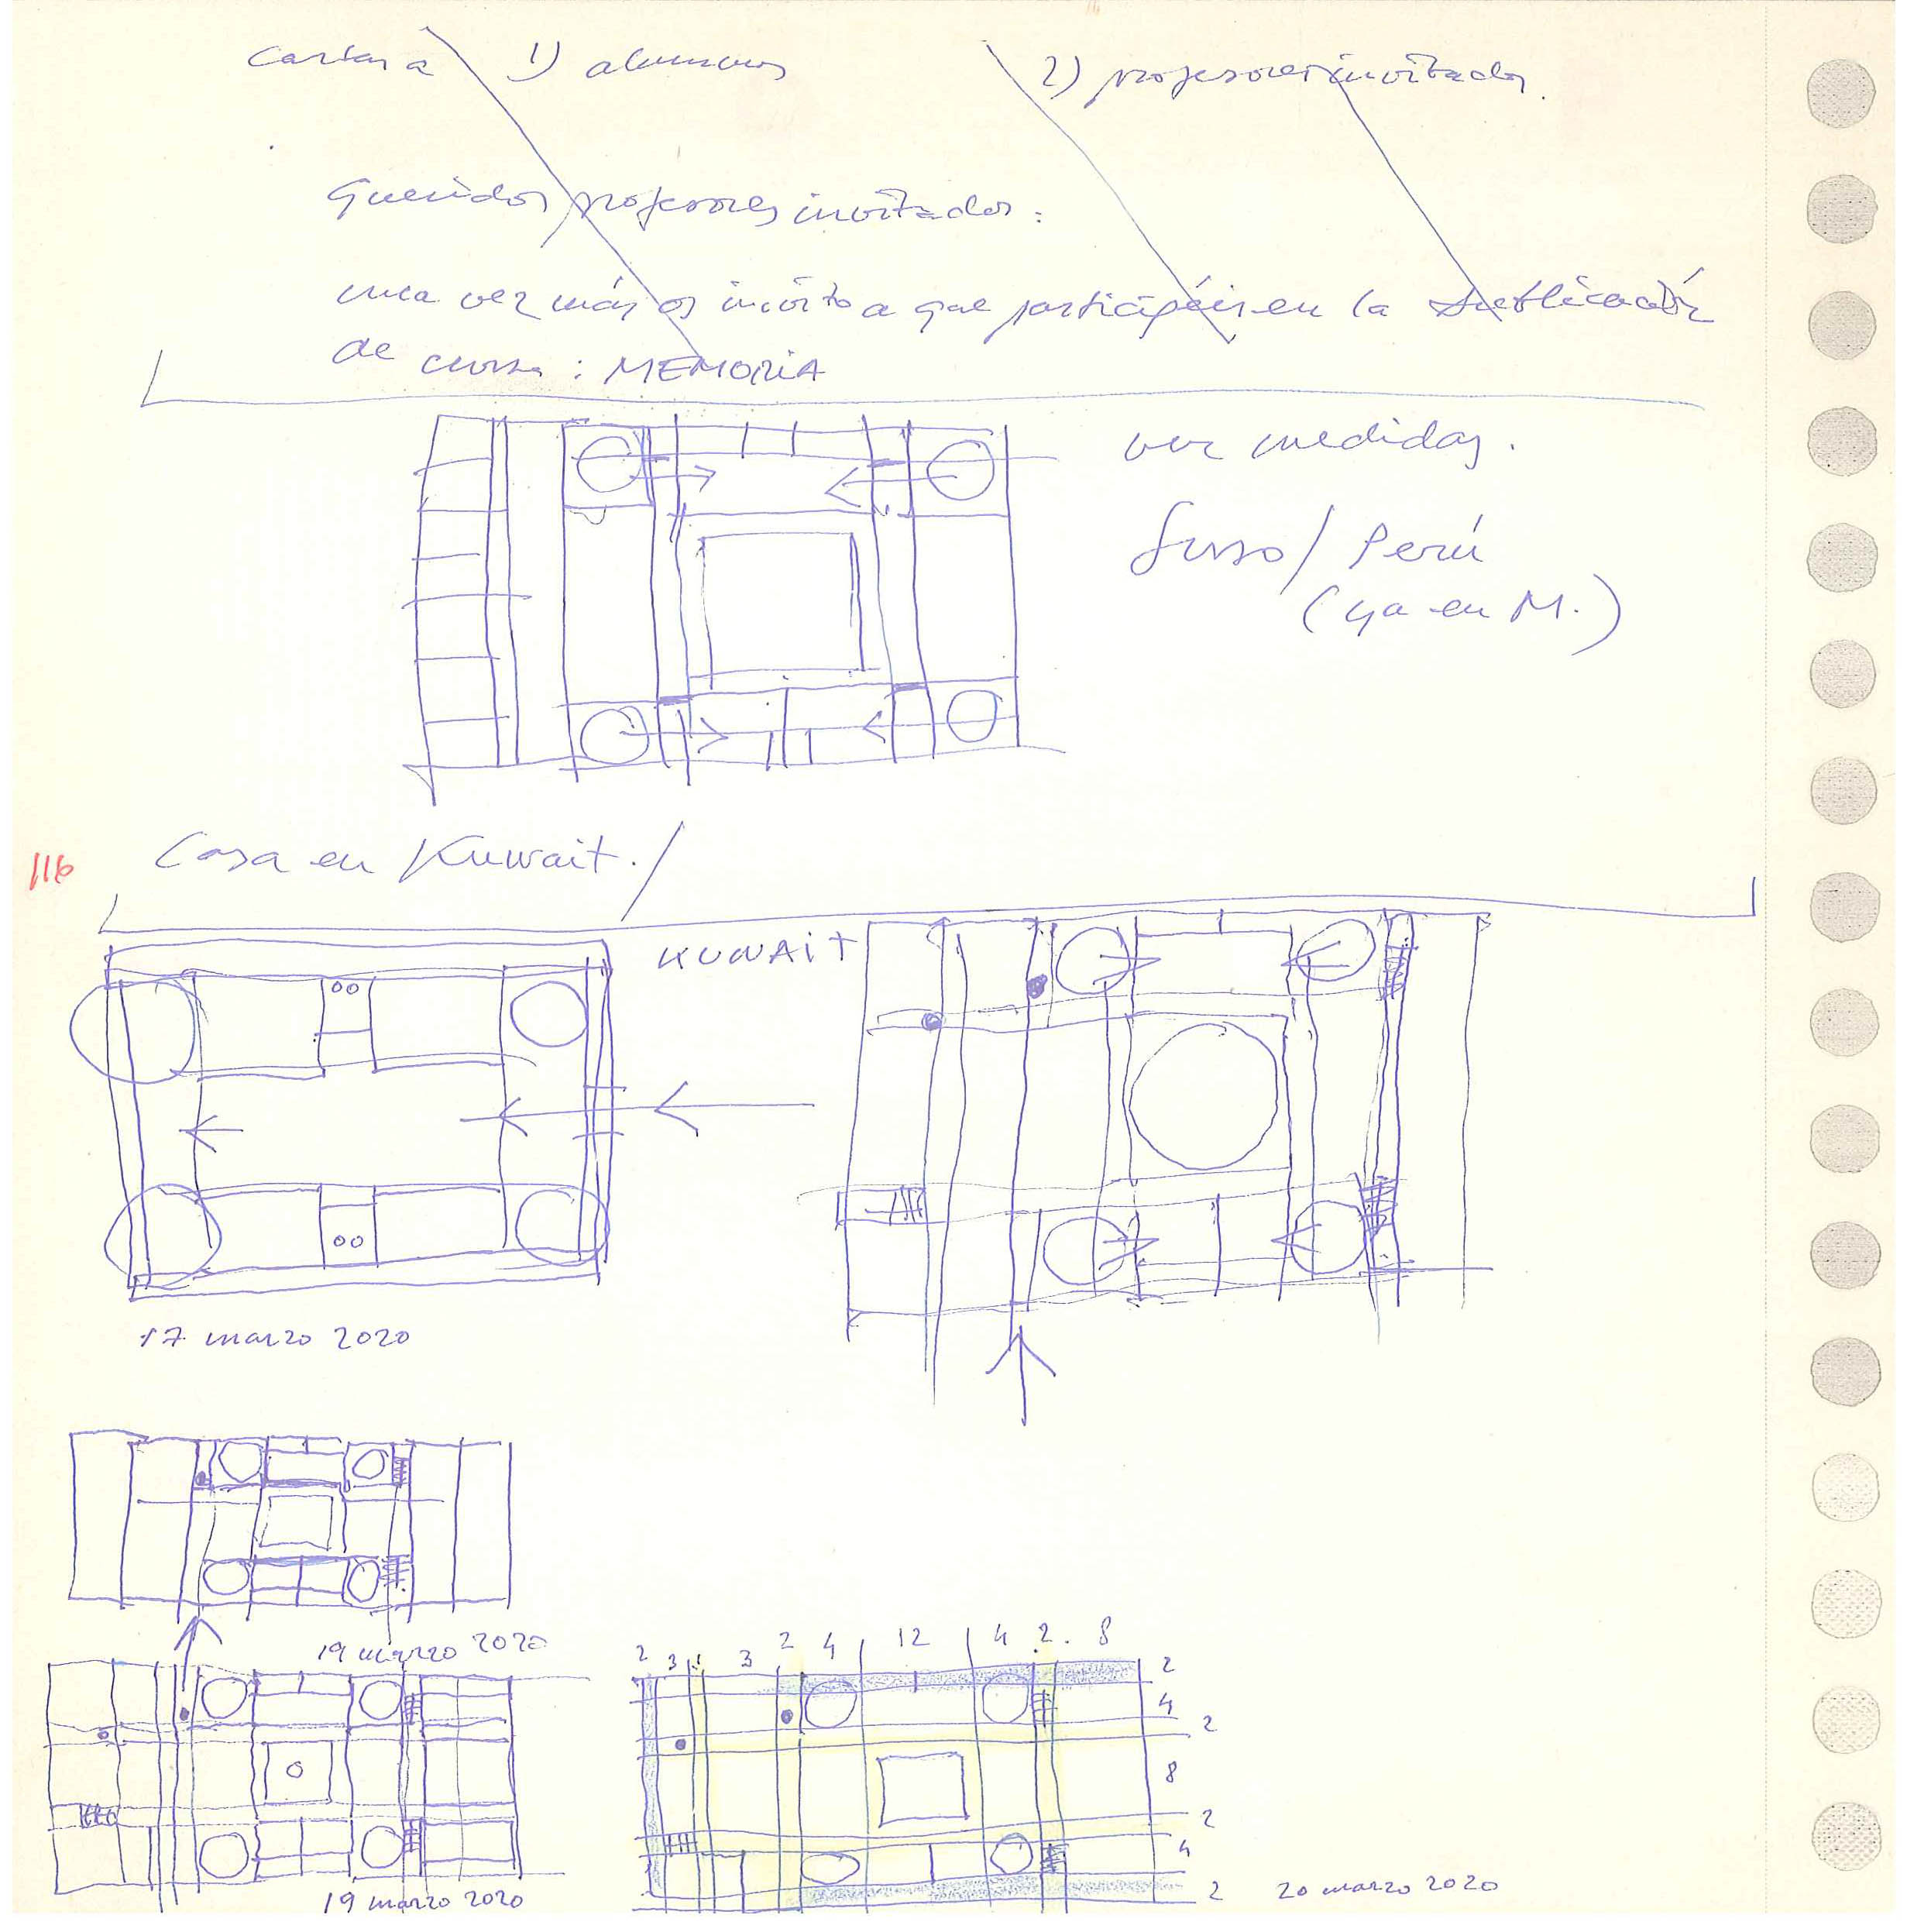 Carta a 1) alumnos 2) profesores invitados.
Queridos profesores invitados:
una vez más os invito a que participéis en la publicación
de curso: MEMORIA
ver medidas.
/ Perú
(ya en M.)
116
Casa en Kuwait./
KUWAIT
17 marzo 2020
19 marzo 2020
2 3 1 3 2 4 12 4 2. 8
2
4
2
8
2
4
2
19 marzo 2020
20 marzo 2020